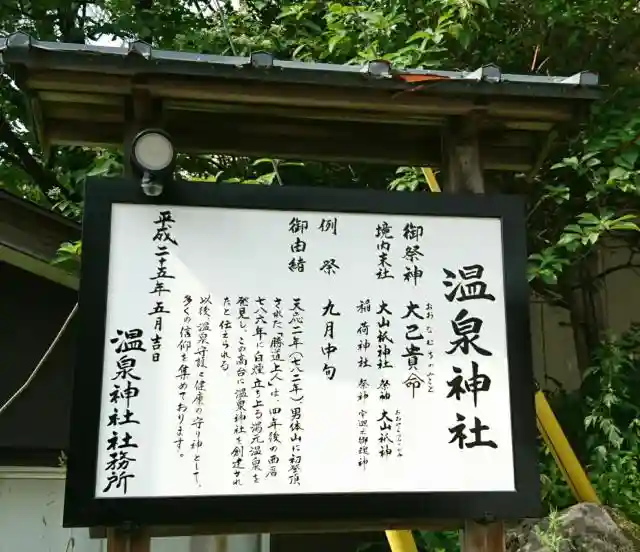 温泉神社
御祭神 大己貴命
おおなむちのみこと
境内末社 大山祇神社 祭神 大山祇神
おおやまづみのかみ
稲荷神社 祭神
例祭 九月中旬
御由緒 天応二年(七八二年)男体山に初登頂
された「勝道上人」は、四年後の西暦
七八六年に白煙立ち上る湯元温泉を
発見し、この高台に温泉神社を創建され
たと仕えられる
以後、温泉守護と健康の守り神として、
多くの信仰を集めております。
平成二十五年五月吉日
温泉神社社務所